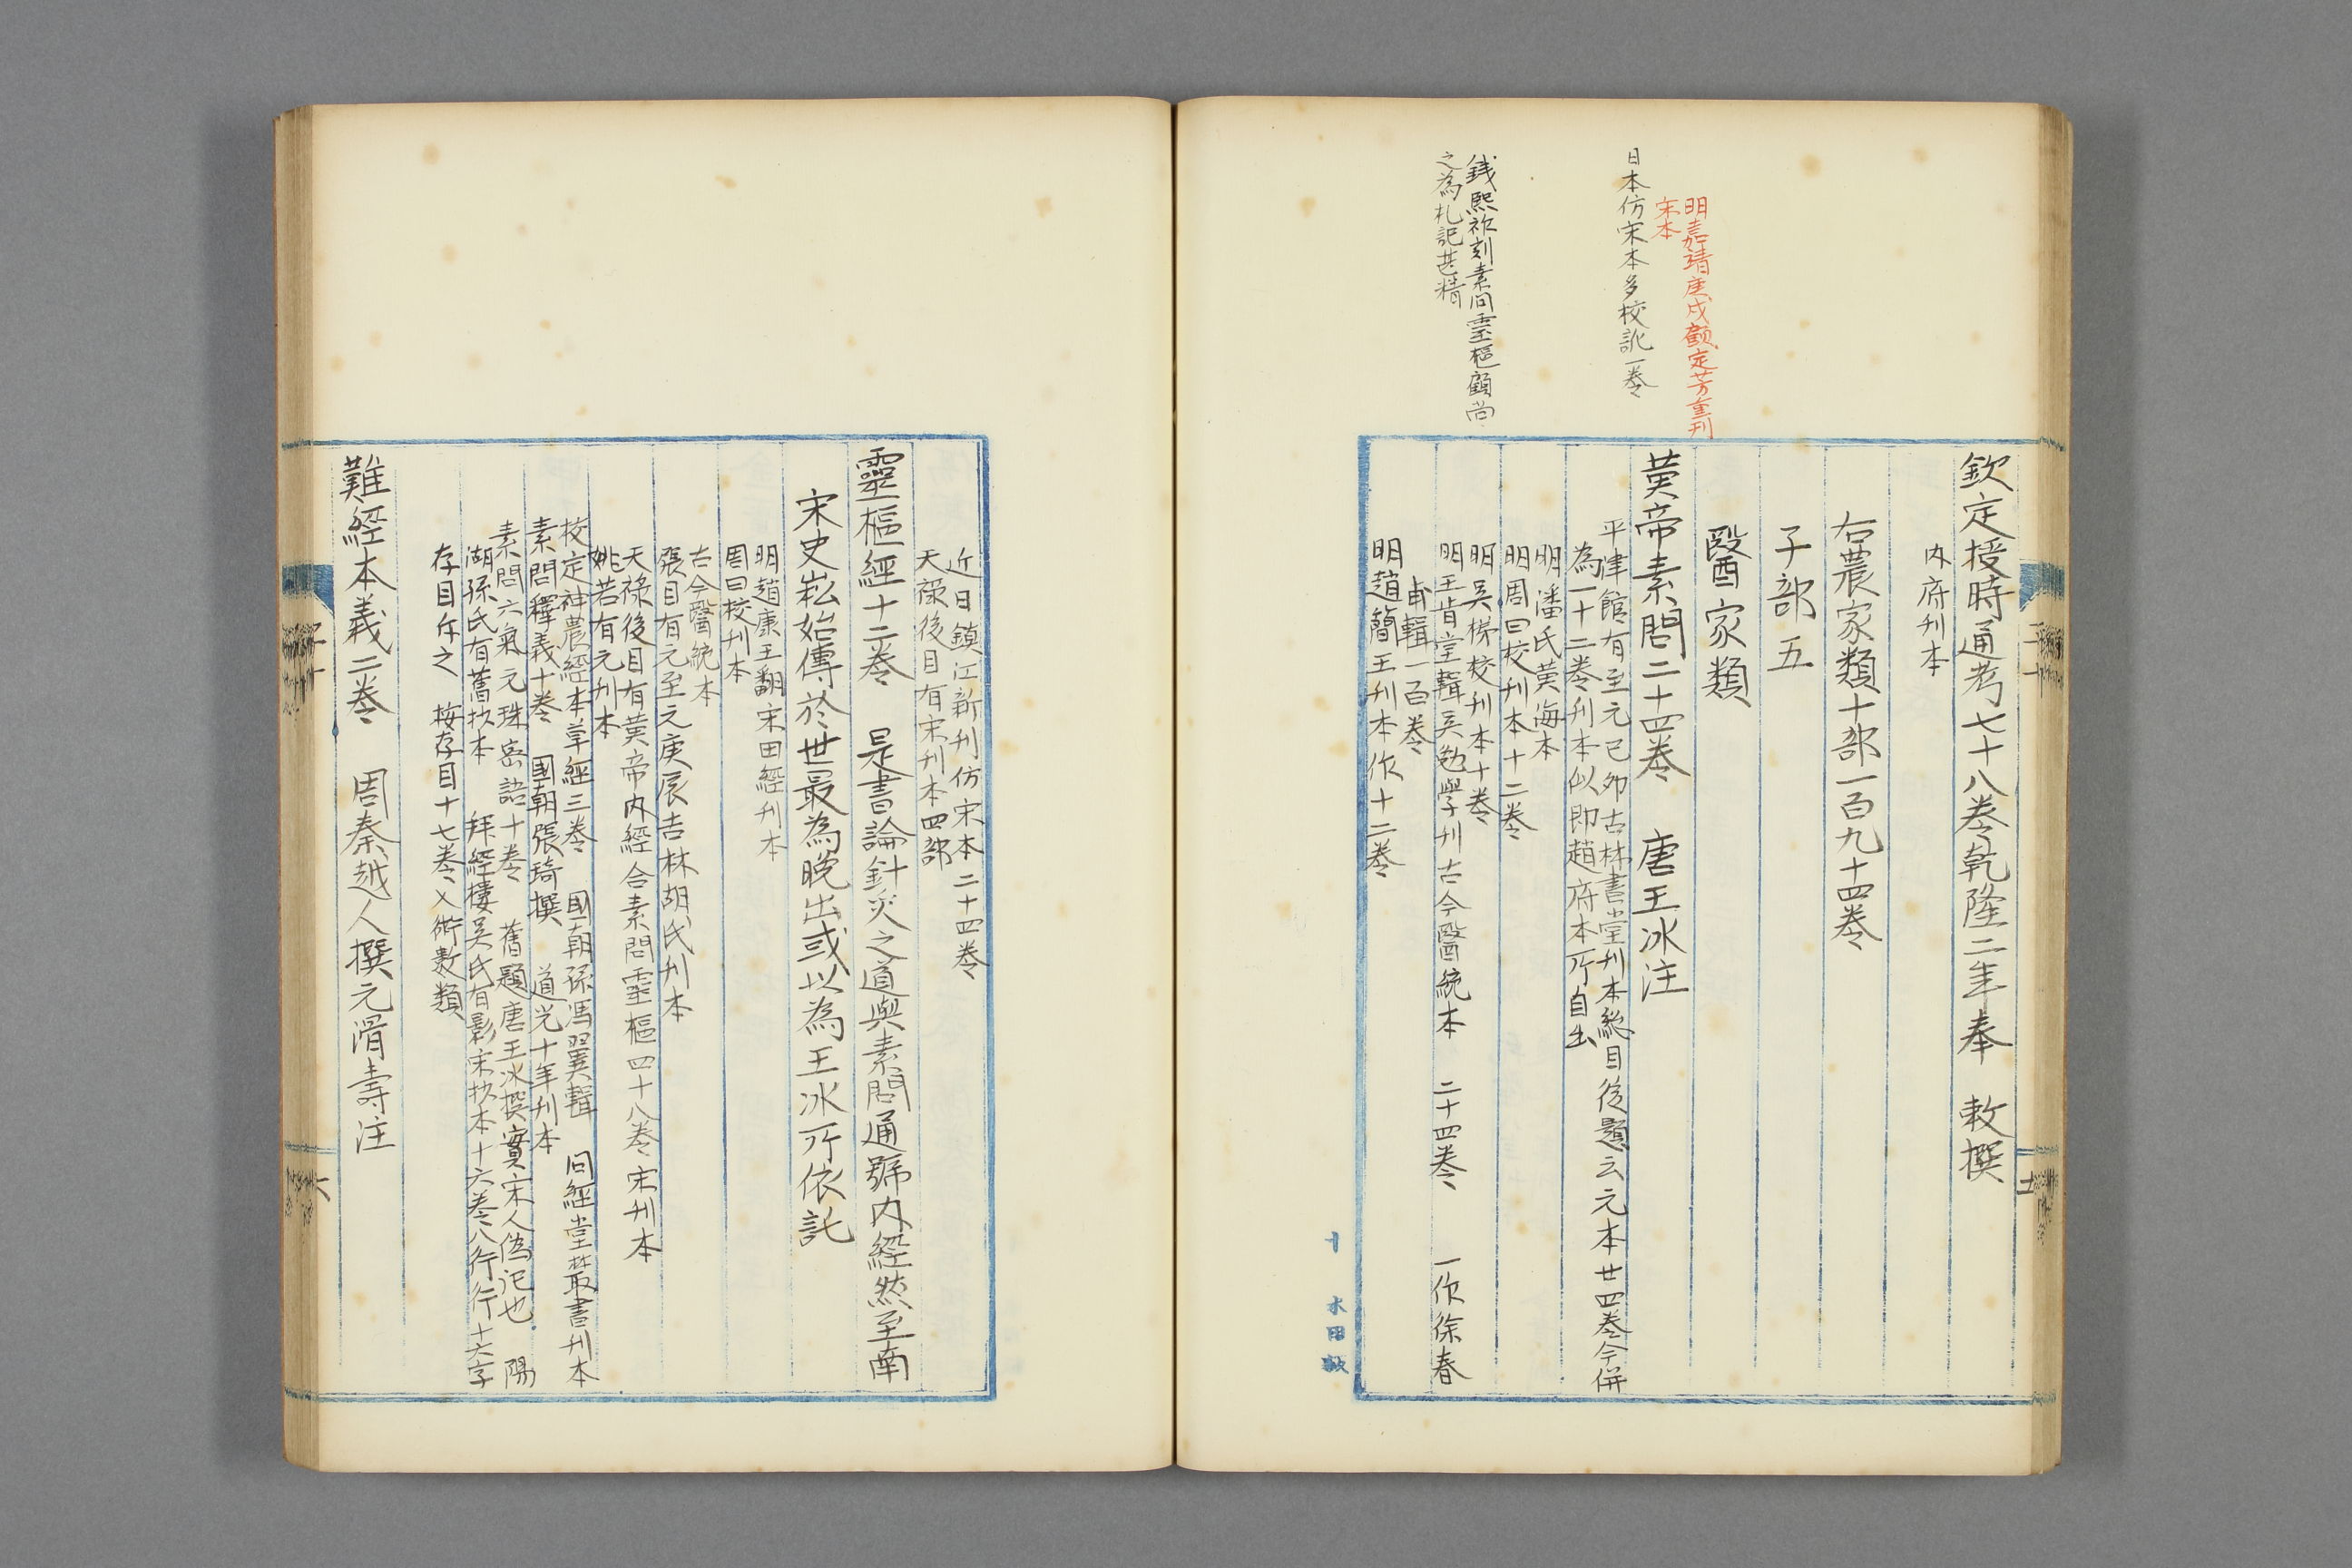 明嘉靖庚戌顧定芳重刊
宋本
日本仿宋本多校訛一卷
錢熙祚刻素问靈樞顧尚
之為札記甚精
欽定授時通考七十八卷乾隆二年奉 敕撰
内府刋本
右農家類十部一百九十四卷
子部五
醫家類
黄帝素問二十四卷 唐王冰注
平津館有至元己卯古林書堂刋本総目後題云元本廿四卷今併
為一十二卷刋本似即趙府本所自出
明潘氏黄海本
明周曰校刋本十二卷
明吴悌校刋本十卷
明王肯堂輯吴勉學刋古今醫統本 二十四卷 一作徐春
甫輯一百卷
明趙簡王刋本作十二卷
近日鎮江新刋仿宋本二十四卷
天禄後目有宋刋本四部
靈樞經十二卷 是書論針灸之道與素問通號内經然至南
宋史崧始傳於世最為晚出或以為王冰所依託
明趙康王翻宋田經刋本
周曰校刋本
古今醫統本
張目有元至元庚辰吉林胡氏刋本
天禄後目有黄帝内經合素問靈樞四十八卷宋刋本
姚若有元刋本
校定神農經本草經三卷 國朝孫馮翼輯 问經堂叢書刋本
素問釋義十卷 國朝張琦撰 道光十年刋本
素問六氣元珠密語十卷 舊題唐王冰撰實宋人偽记也 陽
湖孫氏有舊抄本 拜經樓吴氏有影宋抄本十六卷八行行十六字
存目午之 按存目十七卷乂術數類
難經本義二卷 周秦越人撰元滑壽注